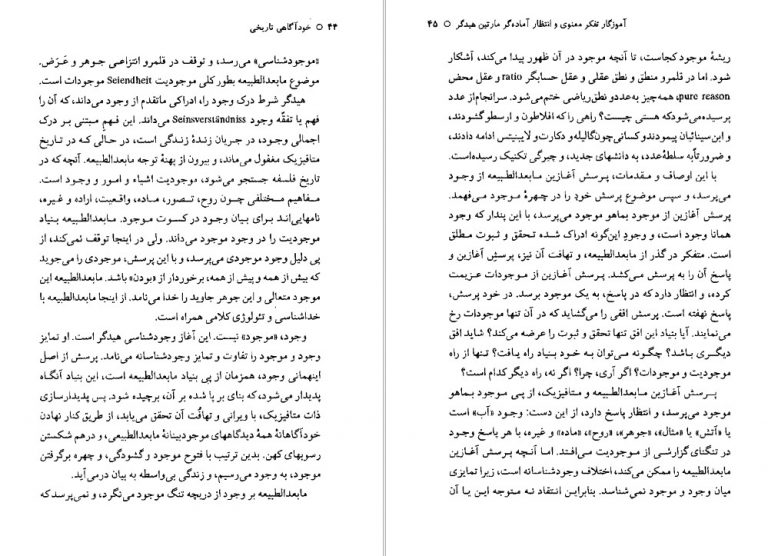 ۴۴ ○ خودآگاهی تاریخی
«موجودشناسی» می‌رسد، و توقف در قلمرو انتزاعی جوهر و عَرَض.
موضوع مابعدالطبیعه بطور کلی موجودیت Seiendheit موجودات است.
هیدگر شرط درک وجود را، ادراکی ماتقدم از وجود می‌داند، که آن را
فهم یا تفقّه وجود Seinsverständniss می‌داند. این فهمِ مبتنی بر درک
اجمالی وجود، در جریان زندهٔ زندگی است، در حالی که در تاریخ
متافیزیک مغفول می‌ماند، و بیرون از پهنهٔ توجه مابعدالطبیعه. آنچه که در
تاریخ فلسفه جستجو می‌شود، موجودیت اشیاء و امور و وجود است.
مفاهیم مختلفی چون روح، تصور، ماده، واقعیت، اراده و غیره،
نامهایی‌اند برای بیان وجود در کسوت موجود. مابعدالطبیعه بنیاد
موجودیت را در وجود موجود می‌داند. ولی در اینجا توقف نمی‌کند، از
پی دلیل وجود موجودی می‌پرسد، و با این پرسش، موجودی را می‌جوید
که بیش از همه و پیش از همه، برخوردار از «بودن» باشد. مابعدالطبیعه این
موجود متعالی و این جوهر جاوید را خدا می‌نامد. از اینجا مابعدالطبیعه با
خداشناسی و تئولوژی کلامی همراه است.
وجود، «موجود» نیست. این آغاز وجودشناسی هیدگر است. او تمایز
وجود و موجود را تفاوت و تمایز وجودشناسانه می‌نامد. پرسش از اصل
اینهمانی وجود، همزمان از پی بنیاد مابعدالطبیعه است، این بنیاد آنگاه
پدیدار می‌شود، که بنای بر پا شده بر آن، برچیده شود. پس پدیدارسازی
ذات متافیزیک، با ویرانی و تهافُت آن تحقق می‌یابد، از طریق کنار نهادن
خودآگاهانهٔ همهٔ دیدگاههای موجودبینانهٔ مابعدالطبیعی، و درهم شکستن
رسوبهای کهن. بدین ترتیب با فتوح موجود و گشودگی، و چهره برگرفتن
موجود، به وجود می‌رسیم، و زندگی بی‌واسطه به بیان درمی‌آید.
مابعدالطبیعه بر وجود از دریچه تنگ موجود می‌نگرد، و نمی‌پرسد که
آموزگار تفکر معنوی و انتظار آماده‌گر مارتین هیدگر ○ ۴۵
ریشهٔ موجود کجاست، تا آنچه موجود در آن ظهور پیدا می‌کند، آشکار
شود. اما در قلمرو منطق و نطق عقلی و عقل حسابگر ratio و عقل محض
pure reason، همه‌چیز به‌عدد و نطق ریاضی ختم می‌شود. سرانجام از عدد
پرسیده می‌شود که هستی چیست؟ راهی را که افلاطون و ارسطو گشودند،
و ابن‌سینائیان پیمودند و کسانی چون گالیله و دکارت و لایبنیتس ادامه دادند،
و ضرورتاً به سلطهٔ عدد، به دانشهای جدید، و چیرگی تکنیک رسیده است.
با این اوصاف و مقدمات، پرسش آغازین مابعدالطبیعه از وجود
می‌پرسد، و سپس موضوع پرسش خودِ را در چهرهٔ موجود می‌فهمد.
پرسش آغازین از موجود بماهو موجود می‌پرسد، با این پندار که وجود
همانا وجود است، و وجودِ این‌گونه ادراک شده تحقق و ثبوت مطلق
است. متفکر در گذار از مابعدالطبیعه، و تهافت آن نیز، پرسشِ آغازین و
پاسخ آن را به پرسش می‌کشد. پرسش آغازین از موجودات عزیمت
کرده، و انتظار دارد که در پاسخ، به یک موجود برسد. در خود پرسش،
پاسخ نهفته است. پرسش افقی را می‌گشاید که در آن تنها موجودات رخ
می‌نمایند. آیا بنیاد این افق تنها تحقق و ثبوت را عرضه می‌کند؟ شاید افق
دیگری باشد؟ چگونه می‌توان به خود بنیاد راه یافت؟ تنها از راه
موجودیت و موجودات؟ اگر آری، چرا؟ اگر نه، راه دیگر کدام است؟
پرسش آغازین مابعدالطبیعه و متافیزیک، از پی موجود بماهو
موجود می‌پرسد، و انتظار پاسخ دارد، از این دست: وجود «آب» است
یا «آتش» یا «مثال»، «جوهر»، «روح»، «ماده» و غیره، با هر پاسخ وجود
در تنگنای گزارشی از موجودیت می‌افتد. اما آنچه پرسش آغازین
مابعدالطبیعه را ممکن می‌کند، اختلاف وجودشناسانه است، زیرا تمایزی
میان وجود و موجود نمی‌شناسد. بنابراین انتقاد نه متوجه این یا آن